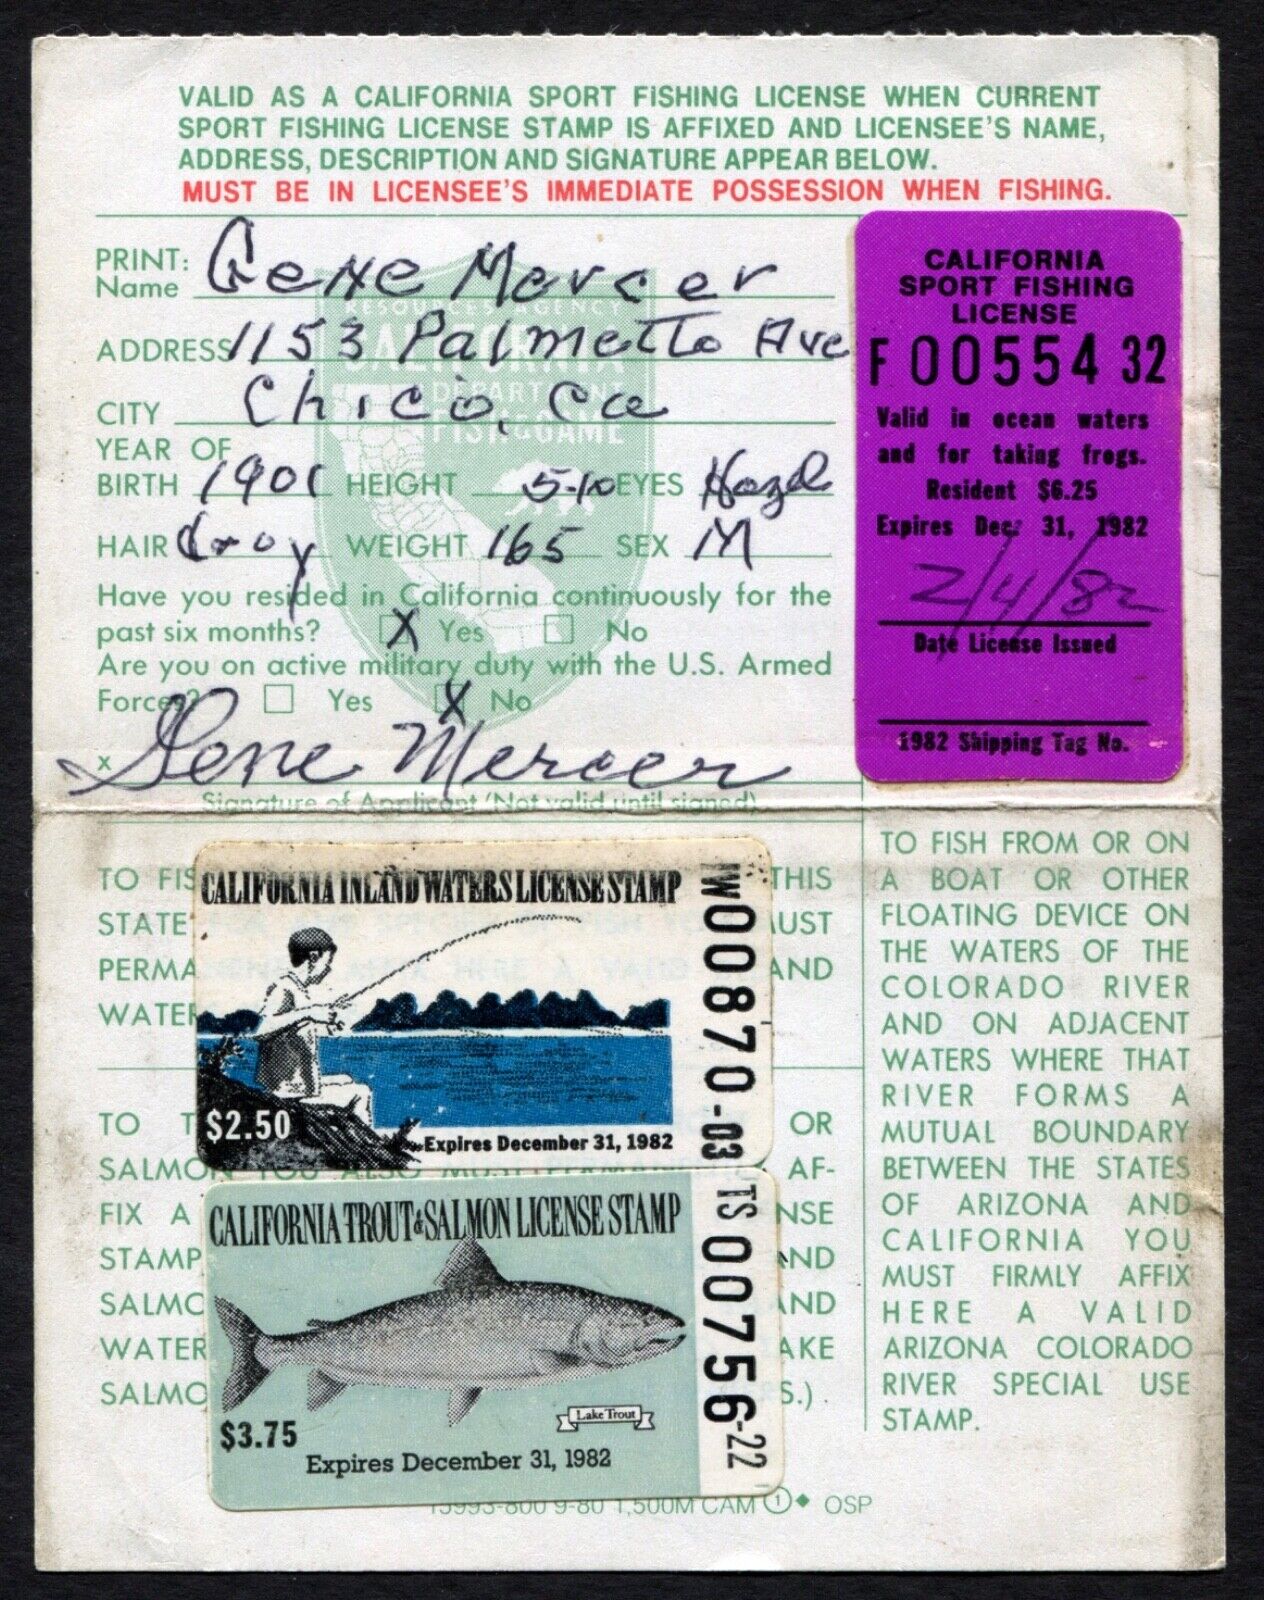 VALID AS A CALIFORNIA SPORT FISHING LICENSE WHEN CURRENT
SPORT FISHING LICENSE STAMP IS AFFIXED AND LICENSEE'S NAME,
ADDRESS, DESCRIPTION AND SIGNATURE APPEAR BELOW.
MUST BE IN LICENSEE'S IMMEDIATE POSSESSION WHEN FISHING.
PRINT:
Name Gene Mercer
ADDRESS 1153 Palmetto Ave
CITY Chico, Ca
YEAR OF
BIRTH 1901 HEIGHT 5-10 EYES Hazel
HAIR Gray WEIGHT 165 SEX M
Have you resided in California continuously for the
past six months? X Yes No
Are you on active military duty with the U.S. Armed
Forces? Yes X No
x Gene Mercer
Signature of Applicant (Not valid until signed)
RESOURCES AGENCY
CALIFORNIA
DEPARTMENT
FISH & GAME
CALIFORNIA
SPORT FISHING
LICENSE
F 00554 32
Valid in ocean waters
and for taking frogs.
Resident $6.25
Expires Dec. 31, 1982
2/4/82
Date License Issued
1982 Shipping Tag No.
TO FIS THIS
STATE MUST
PERMA AND
WATER
CALIFORNIA INLAND WATERS LICENSE STAMP
$2.50
Expires December 31, 1982
IW00870-03
TO T OR
SALMON YOU ALSO MUST AF-
FIX A NSE
STAMP AND
SALMO AND
WATER AKE
SALMO S.)
CALIFORNIA TROUT & SALMON LICENSE STAMP
Lake Trout
$3.75
Expires December 31, 1982
TS 00756-22
TO FISH FROM OR ON
A BOAT OR OTHER
FLOATING DEVICE ON
THE WATERS OF THE
COLORADO RIVER
AND ON ADJACENT
WATERS WHERE THAT
RIVER FORMS A
MUTUAL BOUNDARY
BETWEEN THE STATES
OF ARIZONA AND
CALIFORNIA YOU
MUST FIRMLY AFFIX
HERE A VALID
ARIZONA COLORADO
RIVER SPECIAL USE
STAMP.
15993-800 9-80 1,500M CAM 1 OSP